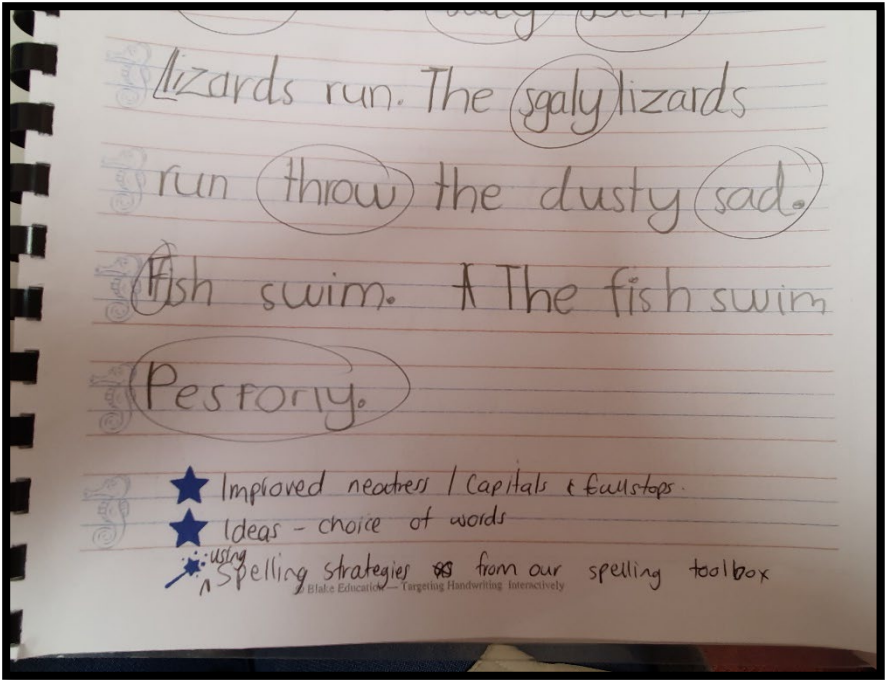 lizards run. The sgaly lizards
run throw the dusty sad.
Fish swim. The fish swim
Pesrorly.
Improved neatness / Capitals & fullstops.
Ideas - choice of words
using
Spelling strategies from our spelling toolbox
Blake Education — Targeting Handwriting Interactively